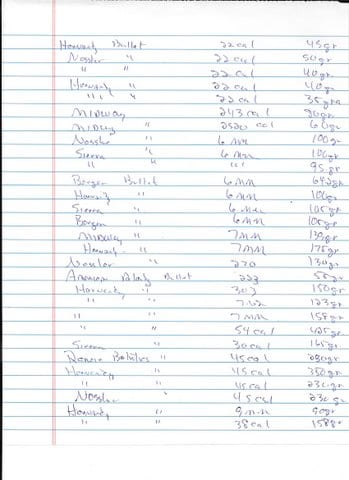 Hornady Bullet 22 cal 45gr
Nosler " 22 cal 50gr
" " 22 cal 40gr
Hornady " 22 cal 40gr
" " 22 cal 35gr
Midway " 243 cal 90gr
Midway " cal 60gr
Nosler " 6 mm 100gr
Sierra " 6 mm 100gr
" " " 95gr
Berger Bullet 6mm gr
Hornady " 6mm
Sierra " 6mm 105gr
Berger " 6mm 105gr
Midway " 7mm 130gr
Hornady " 7mm 175gr
Nosler " 270 130gr
American Bullet 223 55gr
Hornady " 303 150gr
" " 123gr
" " 7mm
" 54 cal 425gr
Sierra " 30 cal 165gr
" 45 cal 230gr
Hornady " 45 cal
" " 45 cal 230gr
Nosler " 45 cal 230gr
Hornady " 9mm 90gr
" " 38 cal 158gr